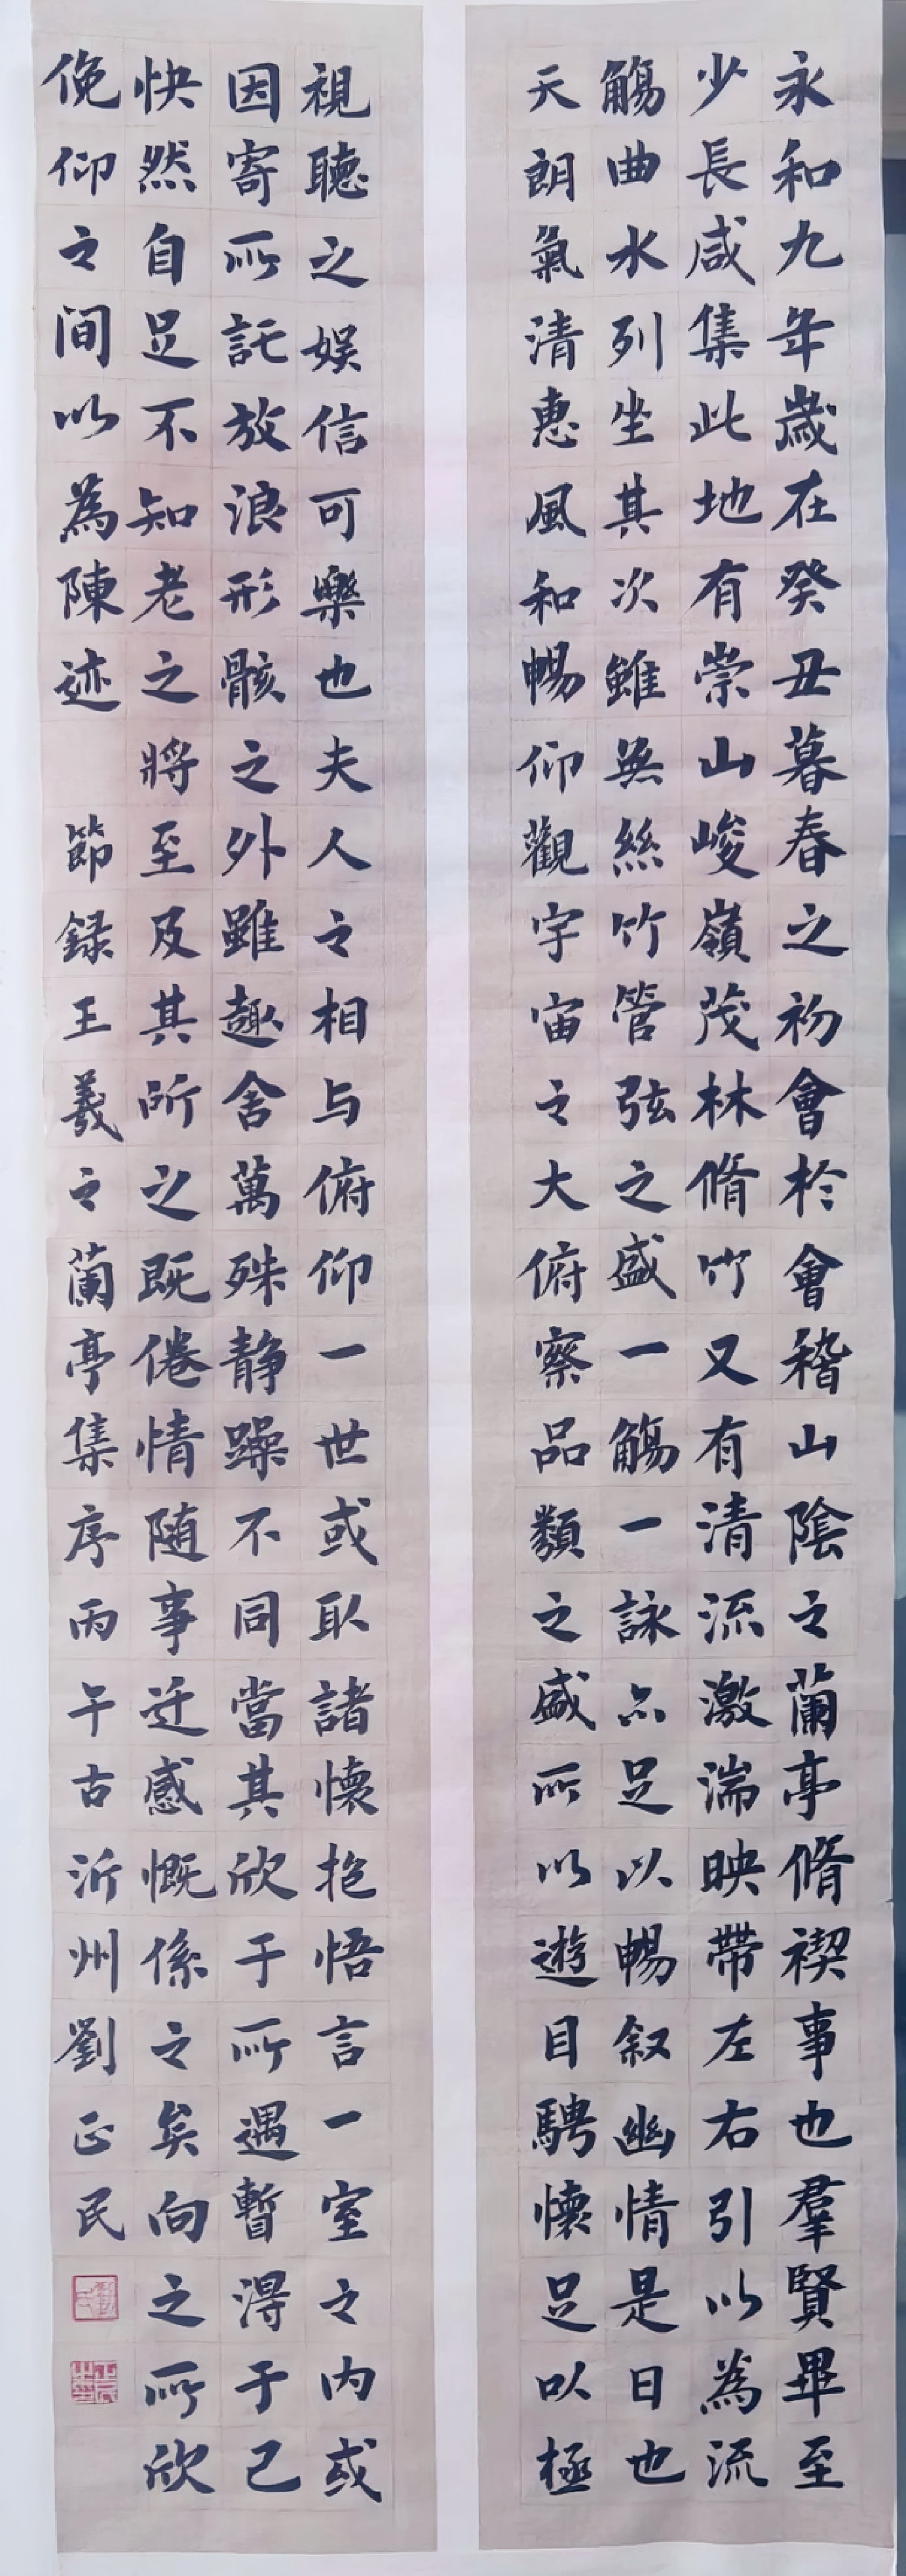 永和九年歲在癸丑暮春之初會於會稽山陰之蘭亭脩禊事也羣賢畢至
少長咸集此地有崇山峻嶺茂林脩竹又有清流激湍映帶左右引以為流
觴曲水列坐其次雖無絲竹管弦之盛一觴一詠亦足以暢叙幽情是日也
天朗氣清惠風和暢仰觀宇宙之大俯察品類之盛所以遊目騁懷足以極
視聽之娛信可樂也夫人之相与俯仰一世或取諸懷抱悟言一室之內或
因寄所託放浪形骸之外雖趣舍萬殊静躁不同當其欣于所遇暫得于己
快然自足不知老之將至及其所之既倦情随事迁感慨係之矣向之所欣
俛仰之间以為陳迹
節録王羲之蘭亭集序丙午古沂州劉正民